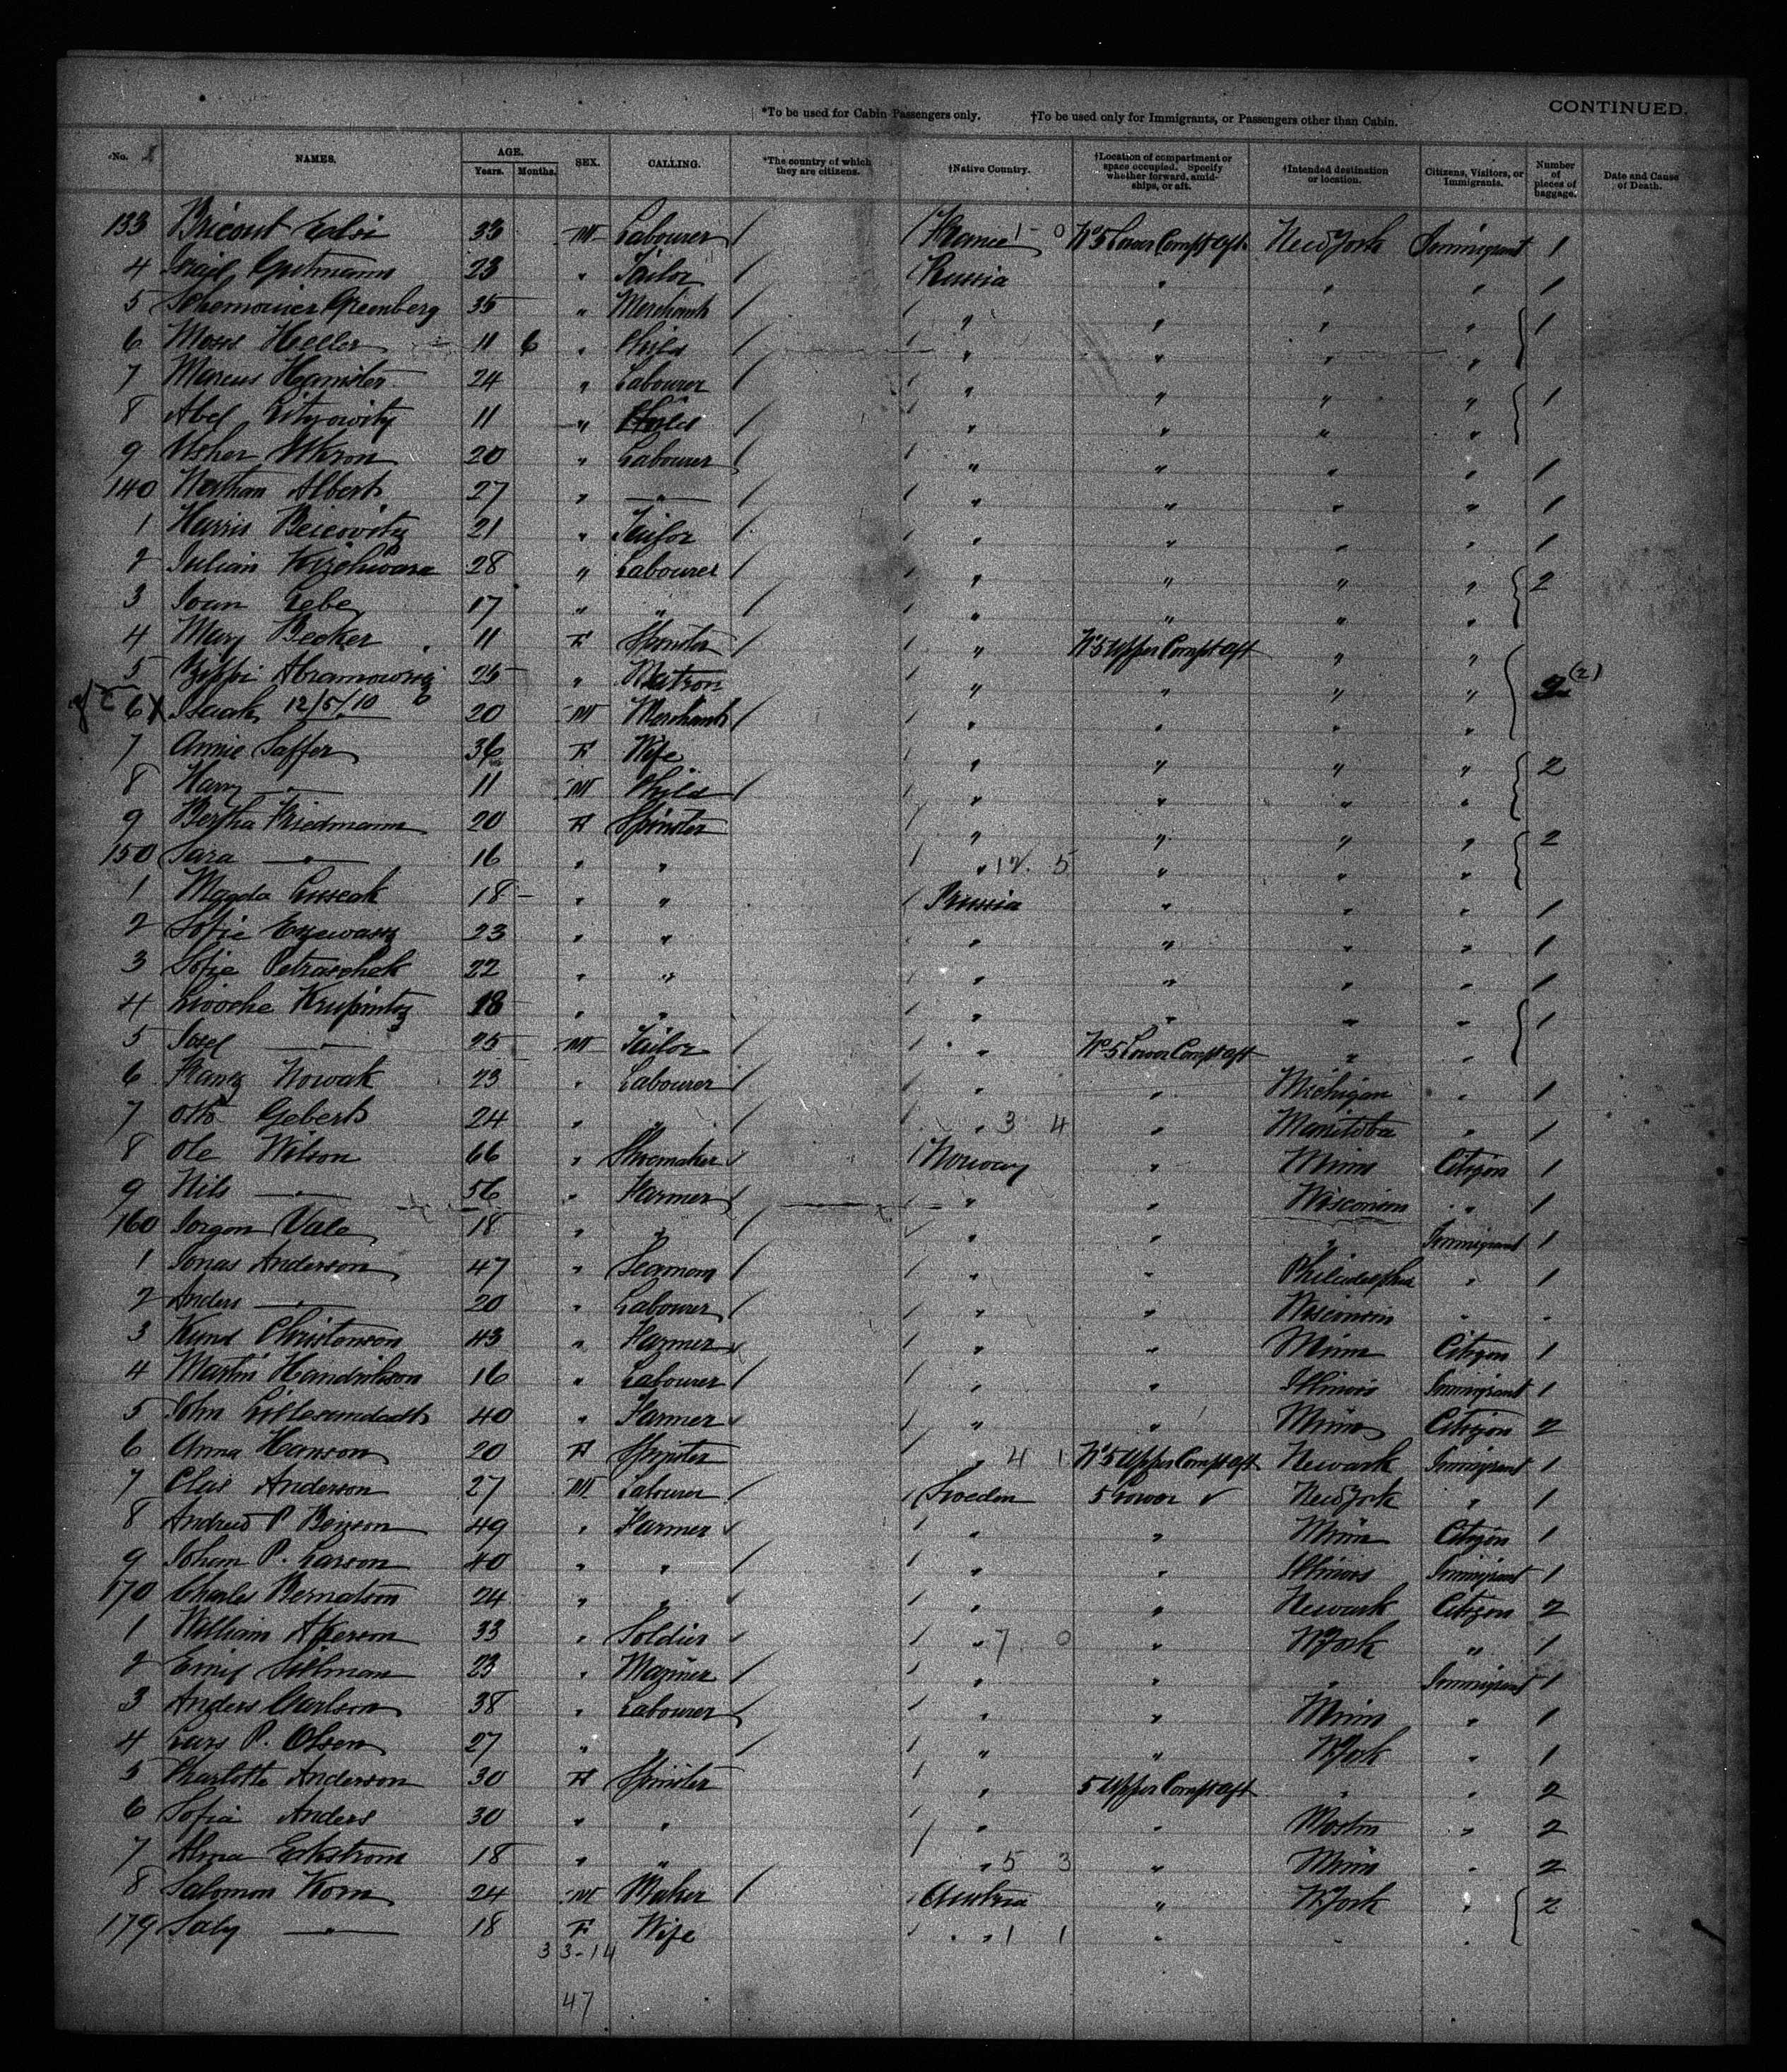 CONTINUED.
*To be used for Cabin Passengers only. †To be used only for Immigrants, or Passengers other than Cabin.
No. NAMES. AGE. Years. Months. SEX. CALLING. *The country of which they are citizens. †Native Country. †Location of compartment or space occupied. Specify whether forward, amidships, or aft. †Intended destination or location. Citizens, Visitors, or Immigrants. Number of pieces of baggage. Date and Cause of Death.
133 Bricout Edsi 33 M Labourer / France 1-0 No 5 Lower Compt aft New York Immigrant 1
4 Israil Gutmann 23 " Tailor / Russia " " " 1
5 Greenberg 35 " Merchant / " " " " 1
6 Moses Heller 11 6 " Child / " " " "
7 Marcus Hamister 24 " Labourer / " " " " 1
8 Abel 11 " Child / " " " "
9 Usher 20 " Labourer / " " " " 1
140 Nathan Albert 27 " " / " " " " 1
1 Harris Beicovitz 21 " Tailor / " " " " 1
2 Julian 28 " Labourer / " " " " 2
3 Ivan Lebe 17 " " / " " " "
4 Mary Becker 11 F Spinster / " No 5 Upper Compt aft " "
5 Abramowig 25 " Matron " " " " 2 (2)
6 X Isaak 12/5/10 20 M Merchant / " " " "
7 Annie Saffer 36 F Wife " " " " 2
8 Harry " 11 M Child / " " " "
9 Bertha Friedmann 20 F Spinster " " " " 2
150 Sara " 16 " " " 12 5 " " "
1 Magda 18 " " Prussia " " " 1
2 Sofie 23 " " " " " " 1
3 Sofie Petraschek 22 " " " " " " 1
4 Krupintz 18 " " " " " " 1
5 Josel " 25 M Tailor / " No 5 Lower Compt aft " "
6 Franz Nowak 23 " Labourer / " " Michigan " 1
7 Otto Gebert 24 " " / " 3 4 " Manitoba " 1
8 Ole Wilson 66 " Shoemaker Norway " Minn Citizen 1
9 Nils " 56 " Farmer " " Wisconsin " 1
160 Jorgen Vale 18 " " / " " " Immigrant 1
1 Jonas Anderson 47 " Seaman / " " Philadelphia " 1
2 Anders " 20 " Labourer / " " Wisconsin " "
3 Knud Christenson 43 " Farmer " " Minn Citizen 1
4 Martin Hendrikson 16 " Labourer / " " Illinois Immigrant 1
5 John 40 " Farmer " " Minn Citizen 2
6 Anna Hanson 20 F Spinster " 4 1 No 5 Upper Compt aft Newark Immigrant 1
7 Clas Anderson 27 M Labourer / Sweden 5 Lower New York " 1
8 Andrew P Benson 49 " Farmer " " Minn Citizen 1
9 Johan P. Larson 40 " " / " " Illinois Immigrant 1
170 Charles Berndtson 24 " " " " Newark Citizen 2
1 William Akerson 33 " Soldier " 7 0 " N York " 1
2 Emil Sillman 23 " Mariner / " " " Immigrant 1
3 Anders Carlson 38 " Labourer / " " Minn " 1
4 Lars P. Olsen 27 " " / " " N York " 1
5 Charlotte Anderson 30 F Spinster " 5 Upper Compt aft " " 2
6 Sofia Anders 30 " " " " Boston " 2
7 Alma Eckstrom 18 " " " 5 3 " Minn " 2
8 Salomon Korn 24 M Baker / Austria " N York " 2
179 Saly " 18 F Wife " 1 1 " " "
33-14
47